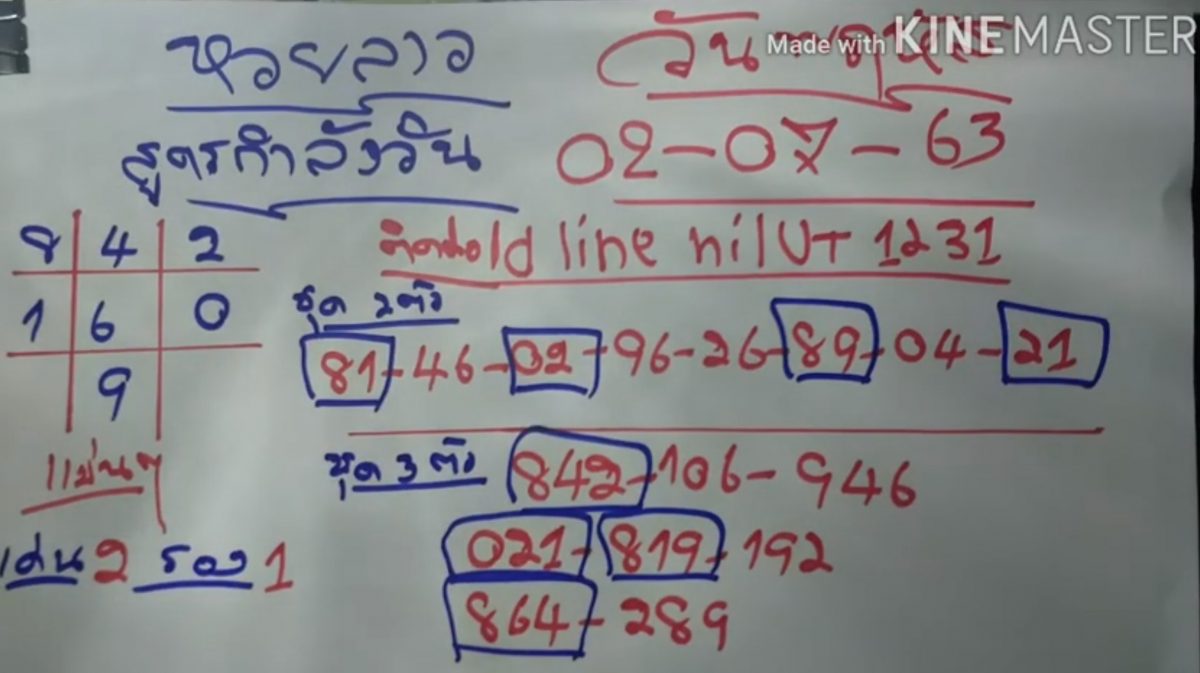 หวยลาว
วันพฤหัส
Made with KINEMASTER
สูตรกำลังวัน
02-07-63
8 4 2
1 6 0
9
ติดต่อId line nilUT 1231
ชุด 2ตัว
81-46-02-96-26-89-04-21
แม่นๆ
เด่น 2 รอง 1
ชุด 3 ตัว 842-106-946
021-819-192
864-289